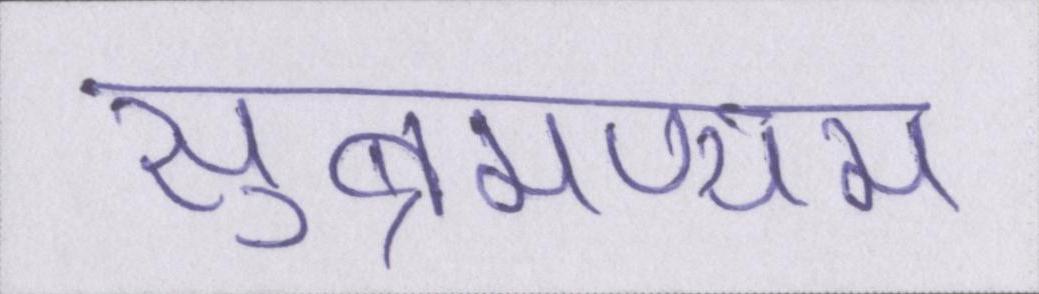 सुब्रमण्यम